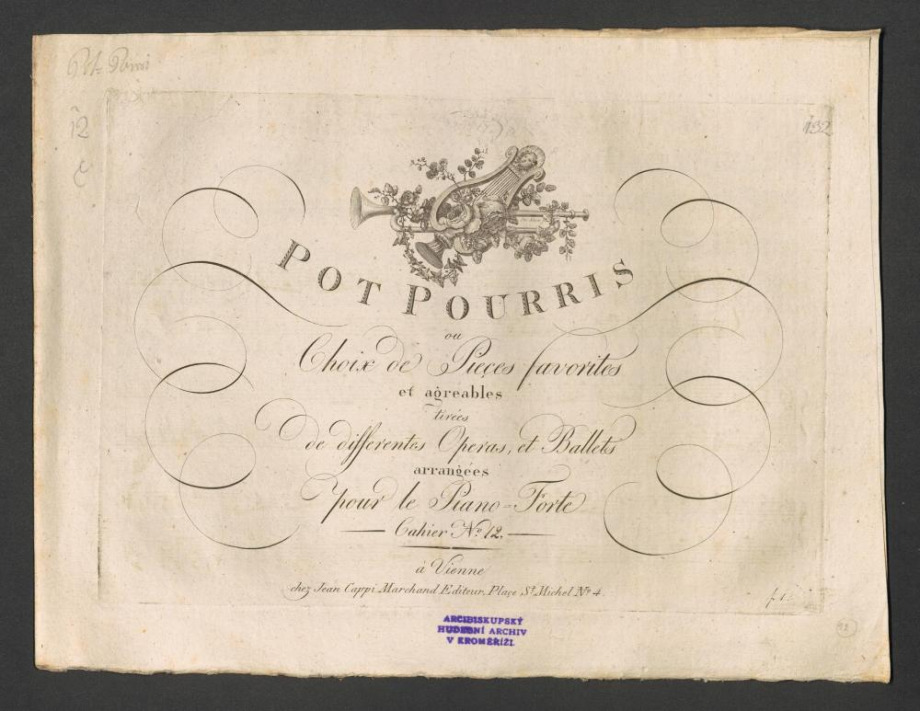 Pot-Pourri
12
132
POT POURRIS
ou
Choix de Pieces favorites
et agréables
tirées
de differentes Operas, et Ballets
arrangées
pour le Piano-Forte
Cahier No. 12.
à Vienne
chez Jean Cappi Marchand Editeur. Place St. Michel No. 4.
f. 1.
12
ARCIBISKUPSKÝ
HUDEBNÍ ARCHIV
V KROMĚŘÍŽI.